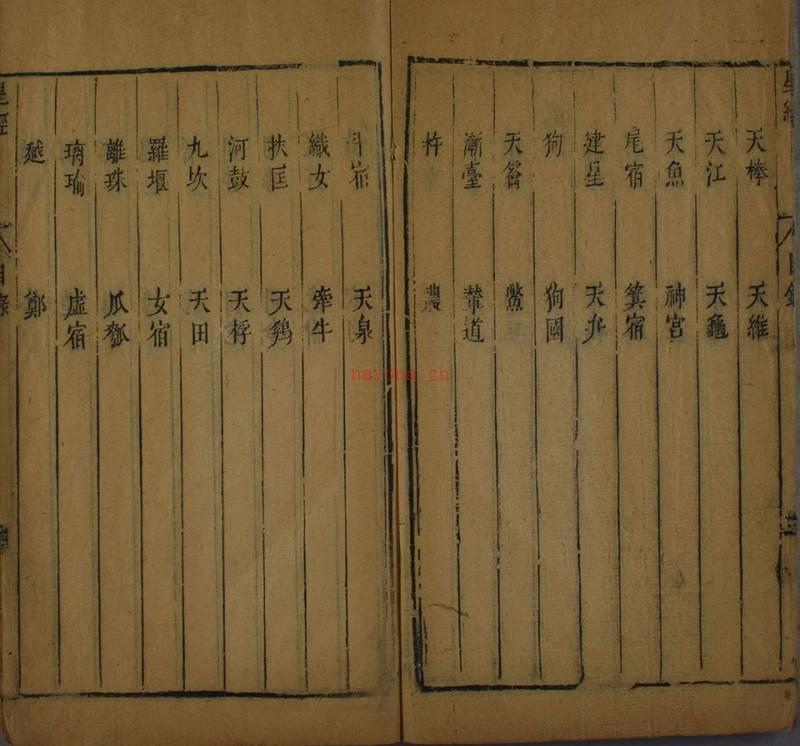 天棒 天維
天江 天龜
天魚 神宮
尾宿 箕宿
建星 天弁
狗 狗國
天籥 鱉
漸臺 輦道
杵 農
斗宿 天泉
織女 牽牛
扶匡 天鷄
河鼓 天桴
九坎 天田
羅堰 女宿
離珠 瓜瓠
璃瑜 虛宿
越 鄭
星經
目錄
nayona.cn